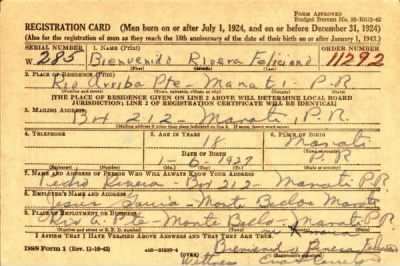 FORM APPROVED
Budget Bureau No. 33-R012-43
REGISTRATION CARD (Men born on or after July 1, 1924, and on or before December 31, 1924)
(Also for the registration of men as they reach the 18th anniversary of the date of their birth on or after January 1, 1943.)
SERIAL NUMBER 1. NAME (Print) ORDER NUMBER
W. 285 Bienvenido Rivera Feliciano 11292
(First) (Middle) (Last)
2. PLACE OF RESIDENCE (Print)
Rio Arriba Pte - Manati - P.R.
[THE PLACE OF RESIDENCE GIVEN ON LINE 2 ABOVE WILL DETERMINE LOCAL BOARD
JURISDICTION; LINE 2 OF REGISTRATION CERTIFICATE WILL BE IDENTICAL]
3. MAILING ADDRESS
Box 212 - Manati, P.R.
4. TELEPHONE 5. AGE IN YEARS 6. PLACE OF BIRTH
18 Manati
DATE OF BIRTH
P.R.
7. NAME AND ADDRESS OF PERSON WHO WILL ALWAYS KNOW YOUR ADDRESS
Pedro Rivera - Box 212 - Manati P.R.
8. EMPLOYER'S NAME AND ADDRESS
Jesus
9. PLACE OF EMPLOYMENT OR BUSINESS
Pte - Monte Bello - Manati P.R.
I AFFIRM THAT I HAVE VERIFIED ABOVE ANSWERS AND THAT THEY ARE TRUE.
DSS Form 1 (Rev. 11-16-42) (OVER)
Bienvenido Rivera Feliciano
Witness